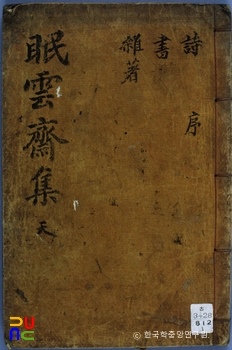 詩 序
書
雜著
眠雲齋集 天
B
3428
812
© 한국학중앙연구원